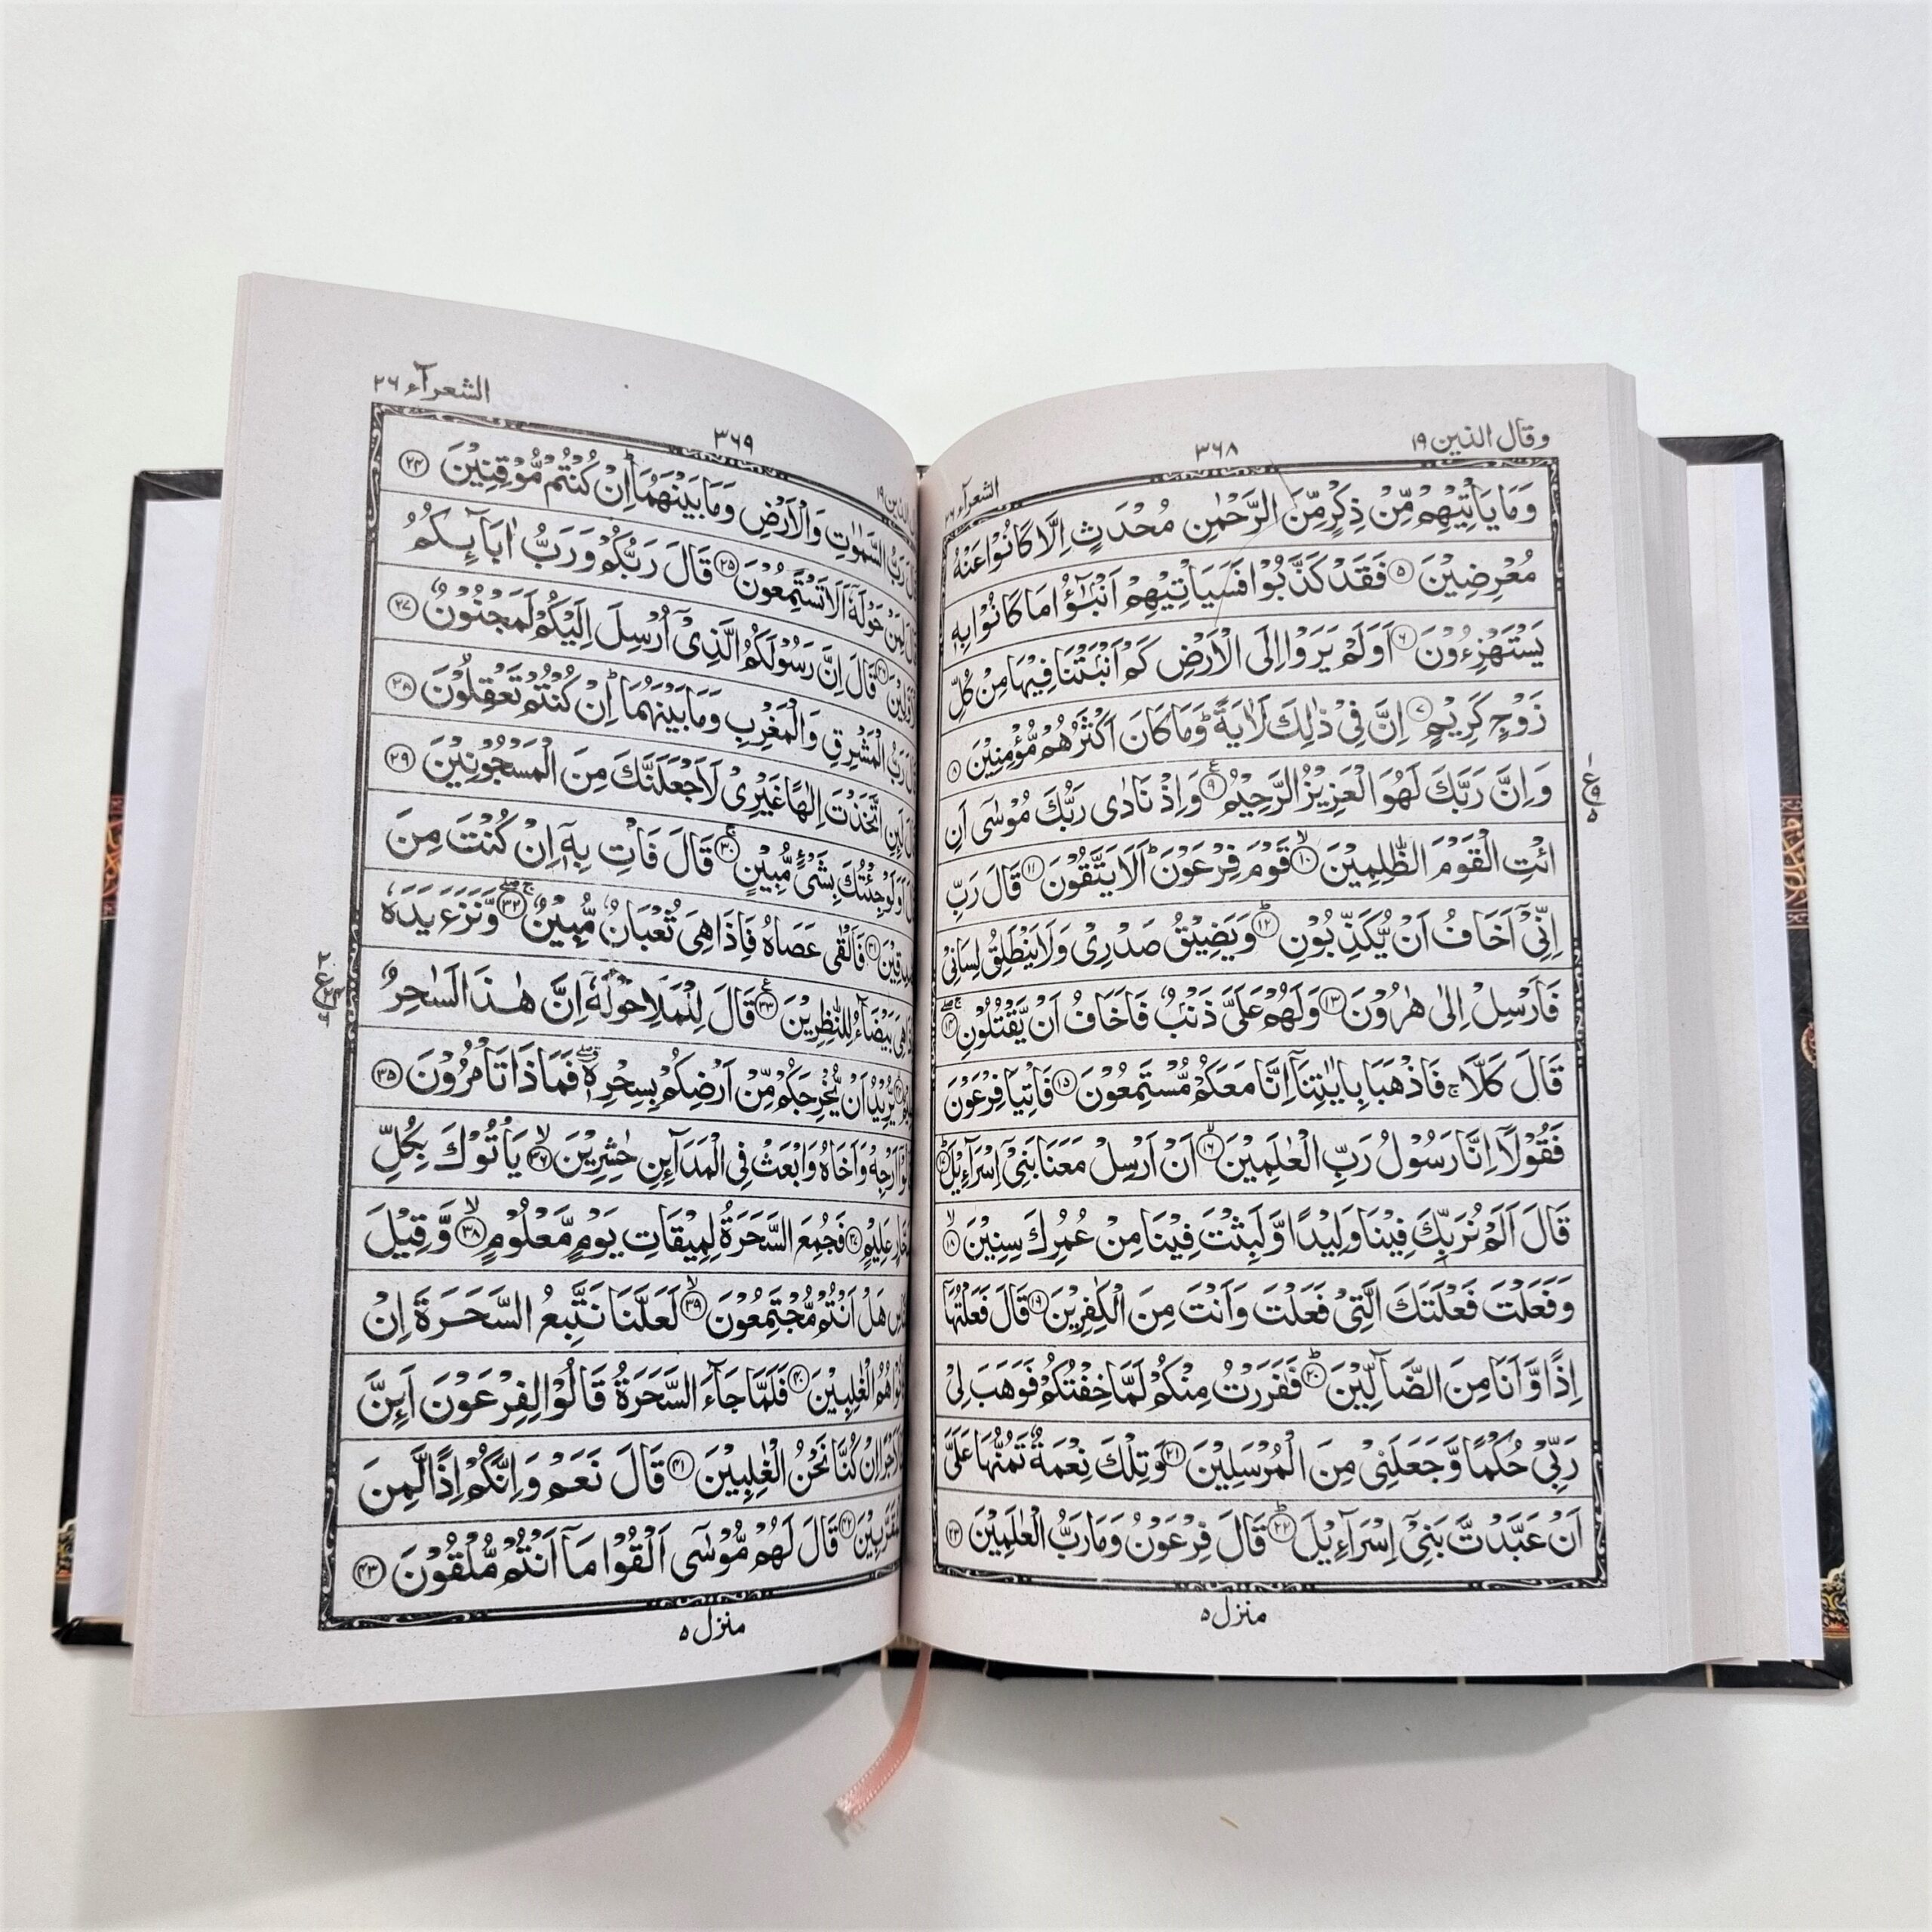 وقال الذين ١٩
٣٦٨
الشعرآء ٢٦
وَمَا يَاْتِيْهِمْ مِّنْ ذِكْرٍ مِّنَ الرَّحْمٰنِ مُحْدَثٍ اِلَّا كَانُوْا عَنْهُ
مُعْرِضِيْنَ ⑤ فَقَدْ كَذَّبُوْا فَسَيَاْتِيْهِمْ اَنْۢبٰٓؤُا مَا كَانُوْا بِهٖ
يَسْتَهْزِءُوْنَ ⑥ اَوَلَمْ يَرَوْا اِلَى الْاَرْضِ كَمْ اَنْۢبَتْنَا فِيْهَا مِنْ كُلِّ
زَوْجٍ كَرِيْمٍ ⑦ اِنَّ فِيْ ذٰلِكَ لَاٰيَةً ؕ وَمَا كَانَ اَكْثَرُهُمْ مُّؤْمِنِيْنَ ⑧
وَاِنَّ رَبَّكَ لَهُوَ الْعَزِيْزُ الرَّحِيْمُ ⑨ وَاِذْ نَادٰى رَبُّكَ مُوْسٰٓى اَنِ
ائْتِ الْقَوْمَ الظّٰلِمِيْنَ ⑩ قَوْمَ فِرْعَوْنَ ؕ اَلَا يَتَّقُوْنَ ⑪ قَالَ رَبِّ
اِنِّيْٓ اَخَافُ اَنْ يُّكَذِّبُوْنِ ⑫ وَيَضِيْقُ صَدْرِيْ وَلَا يَنْطَلِقُ لِسَانِيْ
فَاَرْسِلْ اِلٰى هٰرُوْنَ ⑬ وَلَهُمْ عَلَيَّ ذَنْۢبٌ فَاَخَافُ اَنْ يَّقْتُلُوْنِ ⑭
قَالَ كَلَّا ۚ فَاذْهَبَا بِاٰيٰتِنَآ اِنَّا مَعَكُمْ مُّسْتَمِعُوْنَ ⑮ فَاْتِيَا فِرْعَوْنَ
فَقُوْلَآ اِنَّا رَسُوْلُ رَبِّ الْعٰلَمِيْنَ ⑯ اَنْ اَرْسِلْ مَعَنَا بَنِيْٓ اِسْرَآءِيْلَ ⑰
قَالَ اَلَمْ نُرَبِّكَ فِيْنَا وَلِيْدًا وَّلَبِثْتَ فِيْنَا مِنْ عُمُرِكَ سِنِيْنَ ⑱
وَفَعَلْتَ فَعْلَتَكَ الَّتِيْ فَعَلْتَ وَاَنْتَ مِنَ الْكٰفِرِيْنَ ⑲ قَالَ فَعَلْتُهَآ
اِذًا وَّاَنَا مِنَ الضَّآلِّيْنَ ⑳ فَفَرَرْتُ مِنْكُمْ لَمَّا خِفْتُكُمْ فَوَهَبَ لِيْ
رَبِّيْ حُكْمًا وَّجَعَلَنِيْ مِنَ الْمُرْسَلِيْنَ ㉑ وَتِلْكَ نِعْمَةٌ تَمُنُّهَا عَلَيَّ
اَنْ عَبَّدْتَّ بَنِيْٓ اِسْرَآءِيْلَ ㉒ قَالَ فِرْعَوْنُ وَمَا رَبُّ الْعٰلَمِيْنَ ㉓
منزل ٥
الشعرآء ٢٦
٣٦٩
رَبُّ السَّمٰوٰتِ وَالْاَرْضِ وَمَا بَيْنَهُمَا ؕ اِنْ كُنْتُمْ مُّوْقِنِيْنَ ㉔
لِمَنْ حَوْلَهٗٓ اَلَا تَسْتَمِعُوْنَ ㉕ قَالَ رَبُّكُمْ وَرَبُّ اٰبَآئِكُمُ
㉖ قَالَ اِنَّ رَسُوْلَكُمُ الَّذِيْٓ اُرْسِلَ اِلَيْكُمْ لَمَجْنُوْنٌ ㉗
رَبُّ الْمَشْرِقِ وَالْمَغْرِبِ وَمَا بَيْنَهُمَا ؕ اِنْ كُنْتُمْ تَعْقِلُوْنَ ㉘
لَئِنِ اتَّخَذْتَ اِلٰهًا غَيْرِيْ لَاَجْعَلَنَّكَ مِنَ الْمَسْجُوْنِيْنَ ㉙
اَوَلَوْ جِئْتُكَ بِشَيْءٍ مُّبِيْنٍ ㉚ قَالَ فَاْتِ بِهٖٓ اِنْ كُنْتَ مِنَ
㉛ فَاَلْقٰى عَصَاهُ فَاِذَا هِيَ ثُعْبَانٌ مُّبِيْنٌ ㉜ وَّنَزَعَ يَدَهٗ
هِيَ بَيْضَآءُ لِلنّٰظِرِيْنَ ㉝ قَالَ لِلْمَلَاِ حَوْلَهٗٓ اِنَّ هٰذَا لَسٰحِرٌ
يُّرِيْدُ اَنْ يُّخْرِجَكُمْ مِّنْ اَرْضِكُمْ بِسِحْرِهٖ فَمَاذَا تَاْمُرُوْنَ ㉟
اَرْجِهْ وَاَخَاهُ وَابْعَثْ فِي الْمَدَآئِنِ حٰشِرِيْنَ ㊱ يَاْتُوْكَ بِكُلِّ
عَلِيْمٍ ㊲ فَجُمِعَ السَّحَرَةُ لِمِيْقَاتِ يَوْمٍ مَّعْلُوْمٍ ㊳ وَّقِيْلَ
هَلْ اَنْتُمْ مُّجْتَمِعُوْنَ ㊴ لَعَلَّنَا نَتَّبِعُ السَّحَرَةَ اِنْ
هُمُ الْغٰلِبِيْنَ ㊵ فَلَمَّا جَآءَ السَّحَرَةُ قَالُوْا لِفِرْعَوْنَ اَئِنَّ
لَاَجْرًا اِنْ كُنَّا نَحْنُ الْغٰلِبِيْنَ ㊶ قَالَ نَعَمْ وَاِنَّكُمْ اِذًا لَّمِنَ
㊷ قَالَ لَهُمْ مُّوْسٰٓى اَلْقُوْا مَآ اَنْتُمْ مُّلْقُوْنَ ㊸
منزل ٥